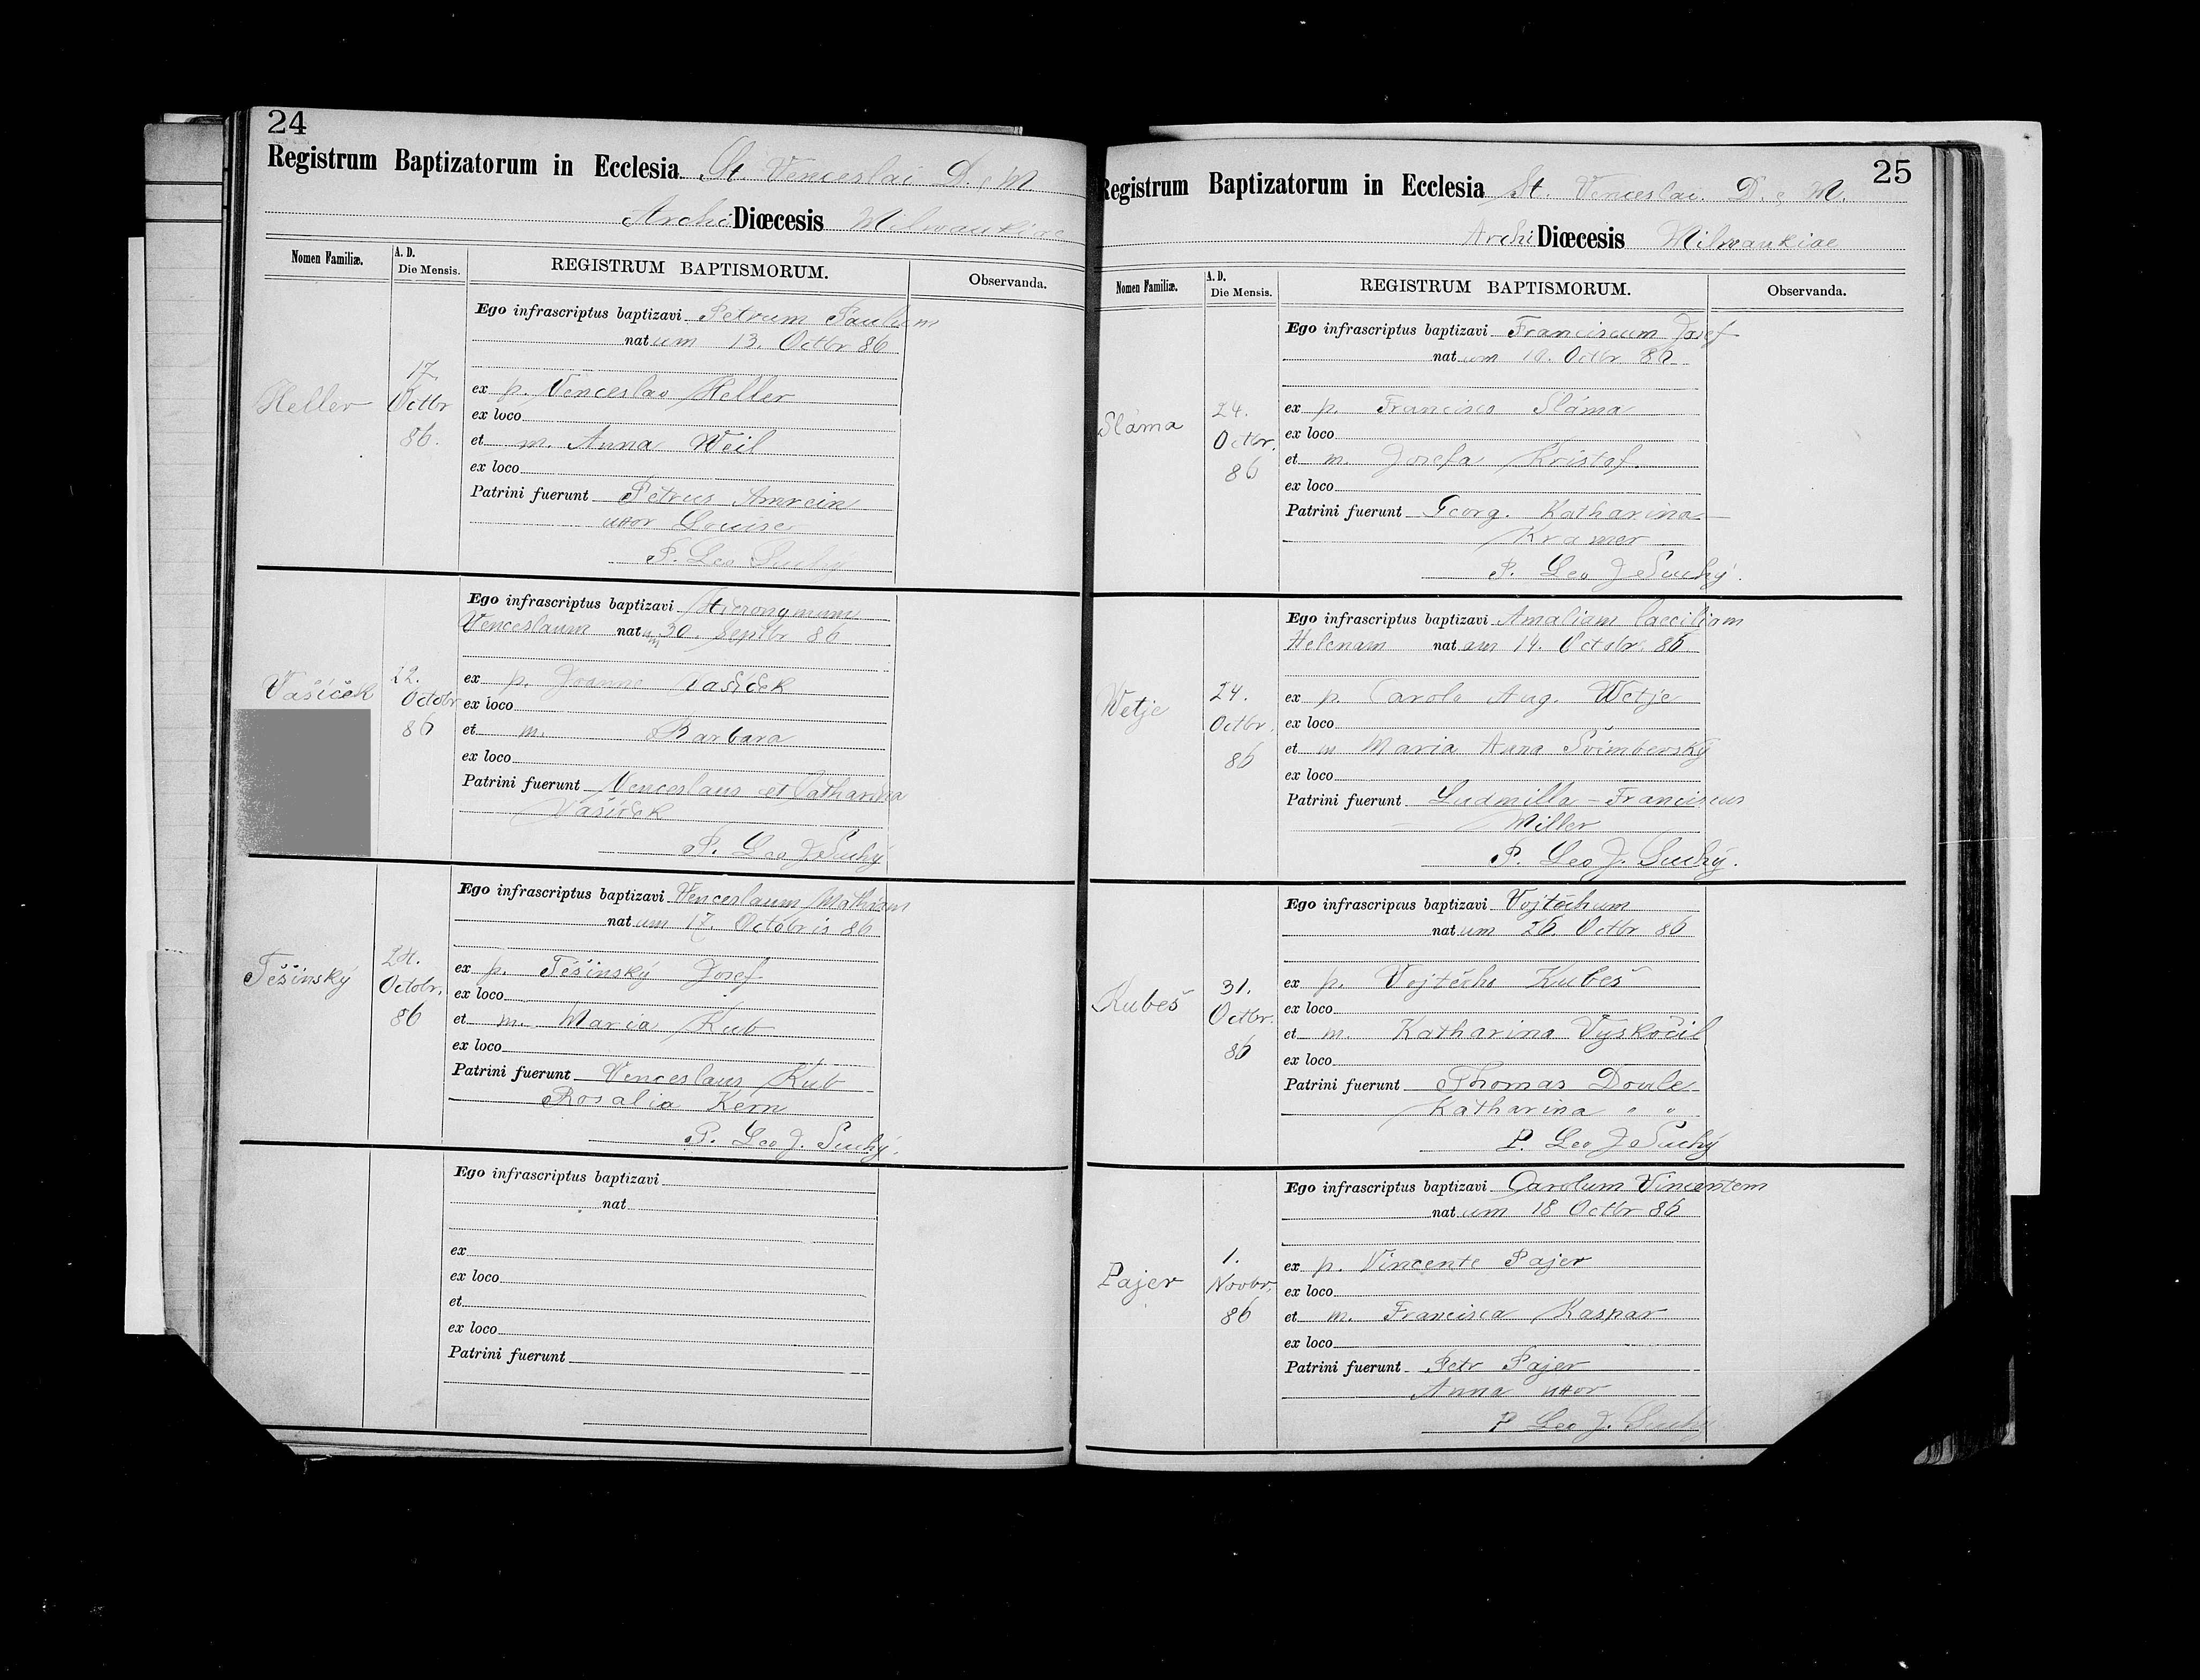 24
Registrum Baptizatorum in Ecclesia St. Venceslai D. & M
Archi Diœcesis Milwaukiae
Nomen Familiæ.
A. D.
Die Mensis.
REGISTRUM BAPTISMORUM.
Observanda.
Heller
17.
Octbr
86.
Ego infrascriptus baptizavi Petrum Paulum
natum 13. Octbr 86
ex p. Venceslao Heller
ex loco
et m. Anna Weil
ex loco
Patrini fuerunt Petrus Amrein
uxor Louise
P. Leo Suchý
Vašíček
22.
Octobr
86
Ego infrascriptus baptizavi Hieronymum
Venceslaum natum 30. Septbr 86
ex p. Joanne Vašíček
ex loco
et m. Barbara
ex loco
Patrini fuerunt Venceslaus et Catharina
Vašíček
P. Leo J. Suchý
Tešinský
24.
Octobr.
86
Ego infrascriptus baptizavi Venceslaum Mathiam
natum 17. Octobris 86
ex p. Tešinský Josef
ex loco
et m. Maria Kub
ex loco
Patrini fuerunt Venceslaus Kub
Rosalia Kern
P. Leo J. Suchý.
Ego infrascriptus baptizavi
nat
ex
ex loco
et
ex loco
Patrini fuerunt
25
Registrum Baptizatorum in Ecclesia St. Venceslai. D. & M.
Archi Diœcesis Milwaukiae
Nomen Familiæ.
A. D.
Die Mensis.
REGISTRUM BAPTISMORUM.
Observanda.
Sláma
24.
Octbr.
86
Ego infrascriptus baptizavi Franciscum Josef
natum 10. Octbr 86
ex p. Francisco Sláma
ex loco
et m. Josefa Kristof.
ex loco
Patrini fuerunt Georg. Katharina
Kramer
P. Leo J. Suchý.
Wetje
24.
Octbr.
86
Ego infrascriptus baptizavi Amaliam Caeciliam
Helenam natam 14. Octobr. 86
ex p. Carolo Aug. Wetje
ex loco
et m Maria Anna Švimberský
ex loco
Patrini fuerunt Ludmilla - Franciscus
Miller
P. Leo J. Suchý.
Kubeš
31.
Octbr.
86
Ego infrascriptus baptizavi Vojtěchum
natum 26. Octbr 86
ex p. Vojtěcho Kubeš
ex loco
et m. Katharina Vyskočil
ex loco
Patrini fuerunt Thomas Doule
Katharina " "
P Leo J Suchý
Pajer
1.
Novbr.
86
Ego infrascriptus baptizavi Carolum Vincentem
natum 18 Octbr 86
ex p. Vincente Pajer
ex loco
et m. Francisca Kaspar
ex loco
Patrini fuerunt Petr Pajer
Anna uxor
P Leo J. Suchý